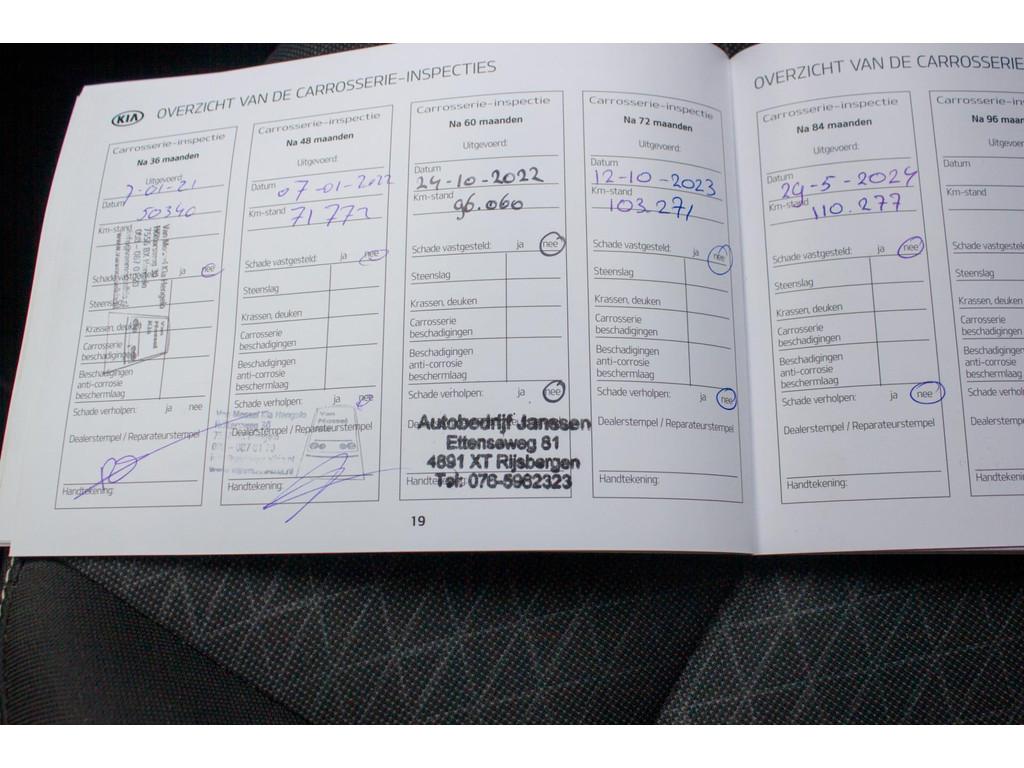 KIA OVERZICHT VAN DE CARROSSERIE-INSPECTIES
Carrosserie-inspectie
Na 36 maanden
Uitgevoerd:
Datum 7-01-21
Km-stand 50340
Schade vastgesteld: ja nee
Steenslag
Krassen, deuken
Carrosserie
beschadigingen
Beschadigingen
anti-corrosie
beschermlaag
Schade verholpen: ja nee
Dealerstempel / Reparateurstempel
Handtekening:
Carrosserie-inspectie
Na 48 maanden
Uitgevoerd:
Datum 07-01-2022
Km-stand 71 772
Schade vastgesteld: ja nee
Steenslag
Krassen, deuken
Carrosserie
beschadigingen
Beschadigingen
anti-corrosie
beschermlaag
Schade verholpen: ja nee
Van Mossel Kia Hengelo
Van
Mossel
Dealerstempel / Reparateurstempel
Handtekening:
Carrosserie-inspectie
Na 60 maanden
Uitgevoerd:
Datum 24-10-2022
Km-stand 96.060
Schade vastgesteld: ja nee
Steenslag
Krassen, deuken
Carrosserie
beschadigingen
Beschadigingen
anti-corrosie
beschermlaag
Schade verholpen: ja nee
Autobedrijf Janssen
Ettenseweg 81
4891 XT Rijsbergen
Tel: 076-5962323
Handtekening:
19
Carrosserie-inspectie
Na 72 maanden
Uitgevoerd:
Datum 12-10-2023
Km-stand 103.271
Schade vastgesteld: ja nee
Steenslag
Krassen, deuken
Carrosserie
beschadigingen
Beschadigingen
anti-corrosie
beschermlaag
Schade verholpen: ja nee
Dealerstempel / Reparateurstempel
Handtekening:
OVERZICHT VAN DE CARROSSERIE
Carrosserie-inspectie
Na 84 maanden
Uitgevoerd:
Datum 29-5-2024
Km-stand 110.277
Schade vastgesteld: ja nee
Steenslag
Krassen, deuken
Carrosserie
beschadigingen
Beschadigingen
anti-corrosie
beschermlaag
Schade verholpen: ja nee
Dealerstempel / Reparateurstempel
Handtekening:
Carrosserie-in
Na 96 maan
Uitgevoerd
Datum
Km-stand
Schade vastgesteld:
Steenslag
Krassen, deuken
Carrosserie
beschadigingen
Beschadigingen
anti-corrosie
beschermlaag
Schade verholpen:
Dealerstempel / Re
Handtekening: